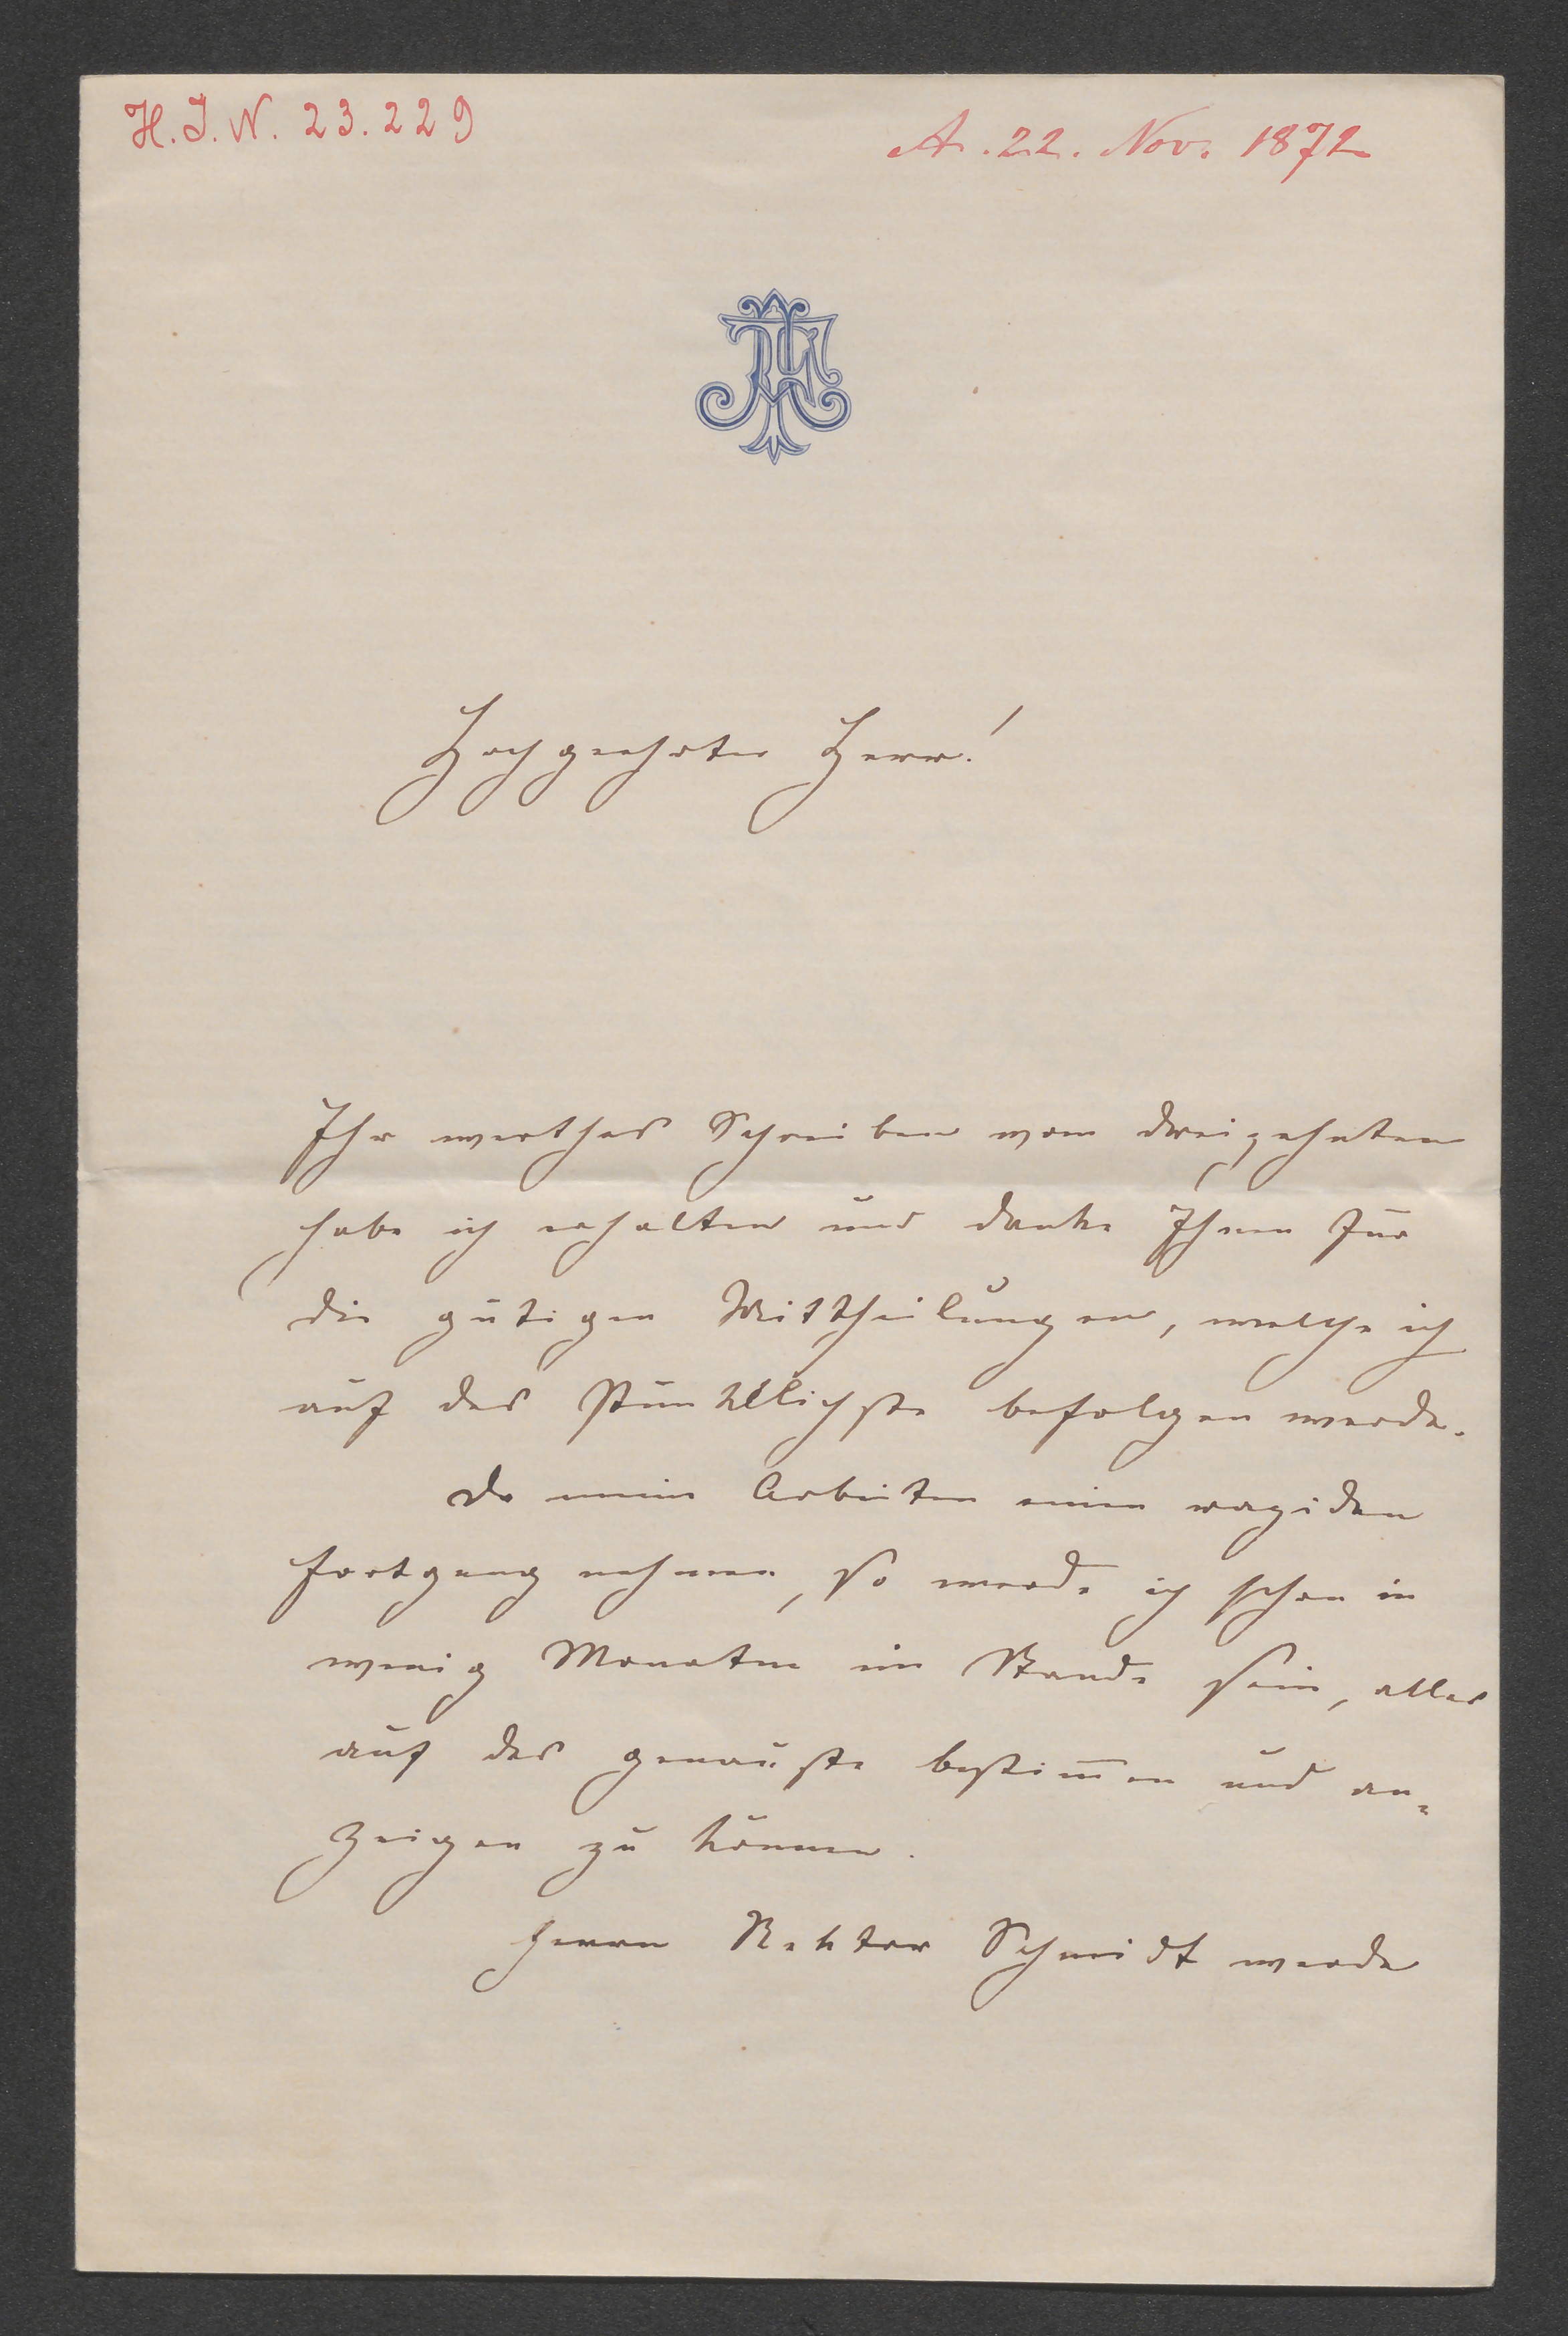 H. I. N. 23.229
A. 22. Nov. 1872
Hochgeehrter Herr!
Ihr werthes Schreiben vom dreizehnten
habe ich erhalten und danke Ihnen für
die gütigen Mittheilungen, welche ich
auf das Pünktlichste befolgen werde.
Da meine Arbeiten einen rapiden
Fortgang nehmen, so werde ich schon in
wenig Monaten im Stande sein, alles
auf das genauste bestim̅en und an=
zeigen zu können.
Herrn Rektor Schmidt werde